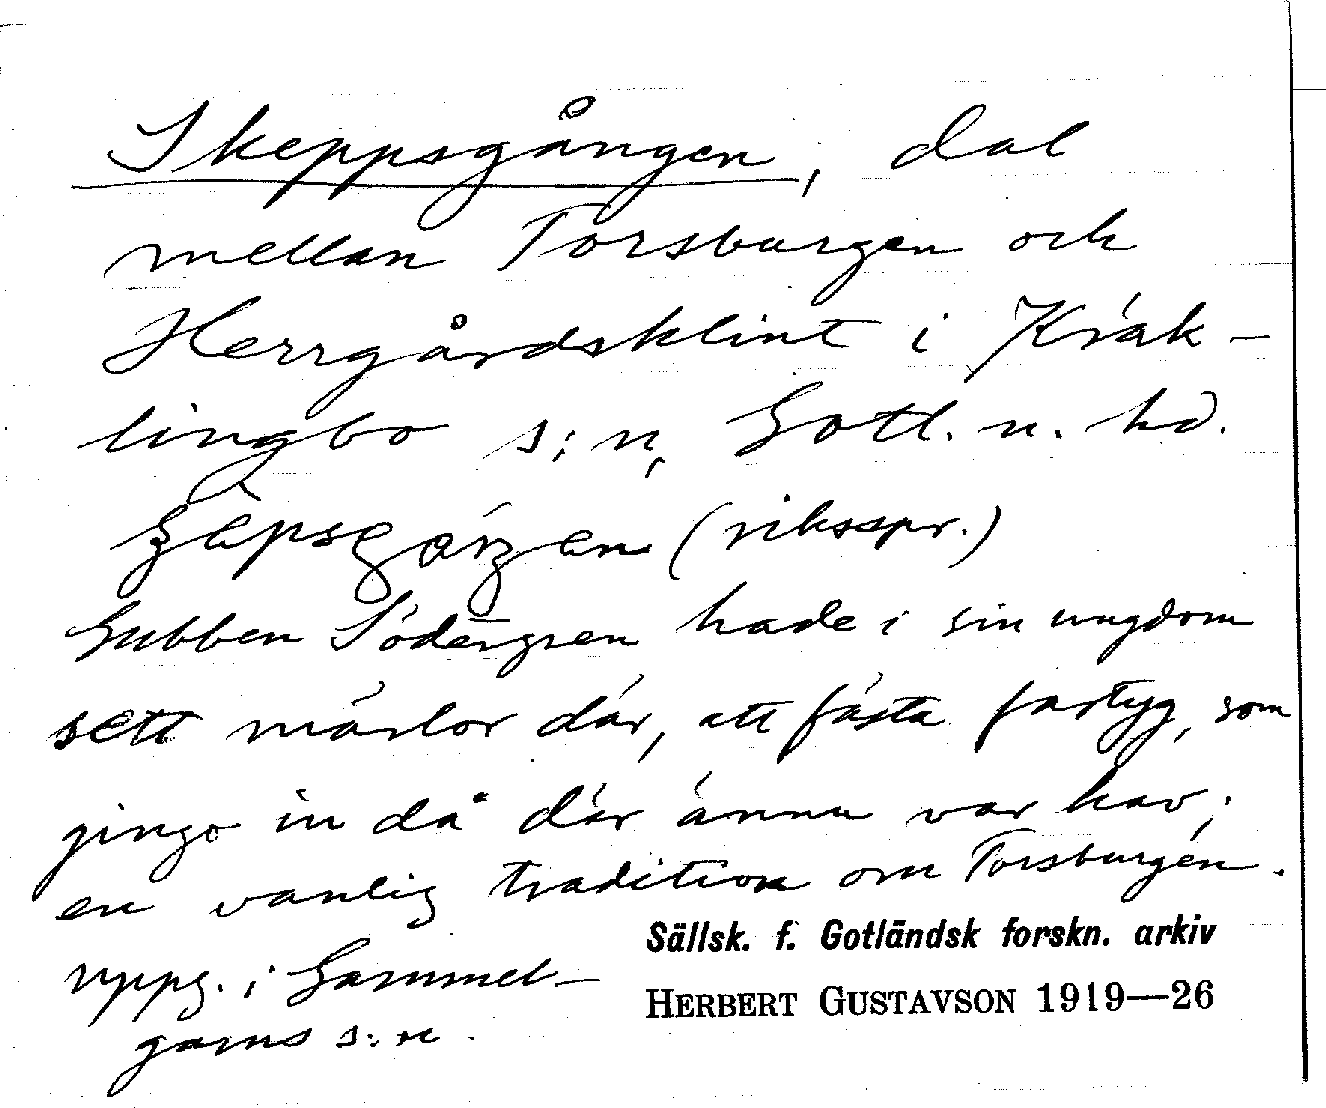 Skeppsgången, dal
mellan Torsburgen och
Herrgårdsklint i Kräk-
lingbo s:n, Gotl. n. hd.
(riksspr.)
Gubben Södergren hade i sin ungdom
sett märlor där, att fästa fartyg, som
gingo in då där ännu var hav;
en vanlig tradition om Torsburgen.
uppg. i Gammel-
garns s:n.
Sällsk. f. Gotländsk forskn. arkiv
HERBERT GUSTAVSON 1919—26